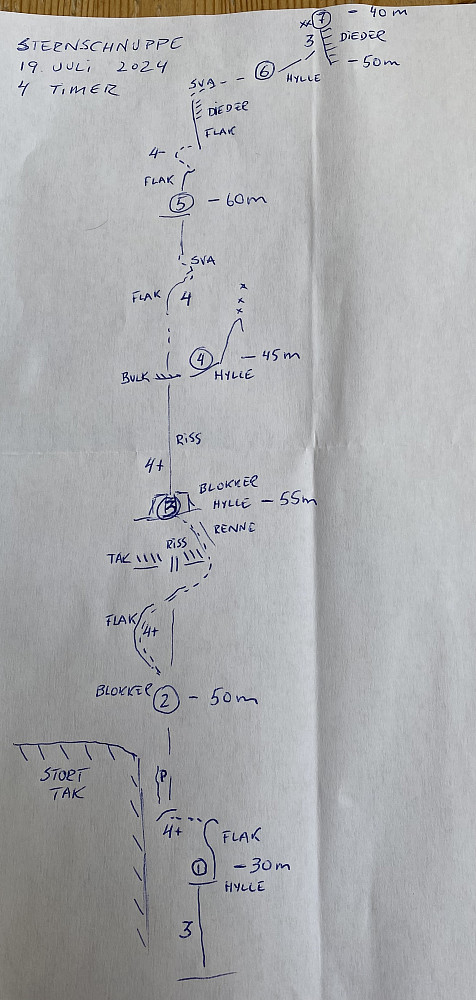 STERNSCHNUPPE
19. JULI 2024
4 TIMER
7 - 40m
3
DIEDER
- 50m
6
HYLLE
SVA
DIEDER
FLAK
4-
FLAK
5 - 60m
SVA
FLAK
4
xxx
4 - 45m
BULK
HYLLE
RISS
4+
BLOKKER
3 HYLLE - 55m
RENNE
RISS
TAK
FLAK
4+
BLOKKER 2 - 50m
STORT
TAK
P
4+
FLAK
1 - 30m
HYLLE
3